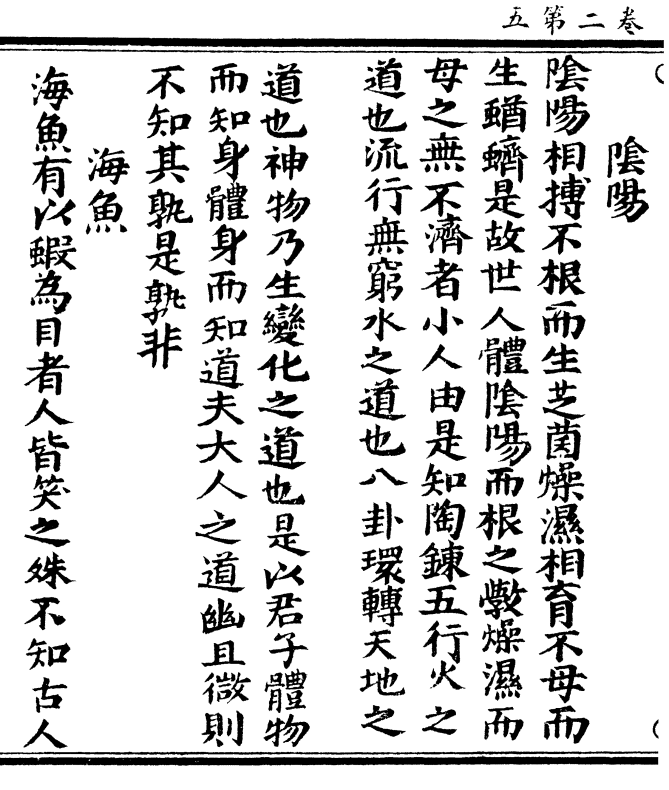 卷二第五
陰陽
陰陽相搏不根而生芝菌燥濕相育不母而
生蝤蠐是故世人體陰陽而根之斆燥濕而
母之無不濟者小人由是知陶鍊五行火之
道也流行無窮水之道也八卦環轉天地之
道也神物乃生變化之道也是以君子體物
而知身體身而知道夫大人之道幽且微則
不知其孰是孰非
海魚
海魚有以蝦為目者人皆笑之殊不知古人